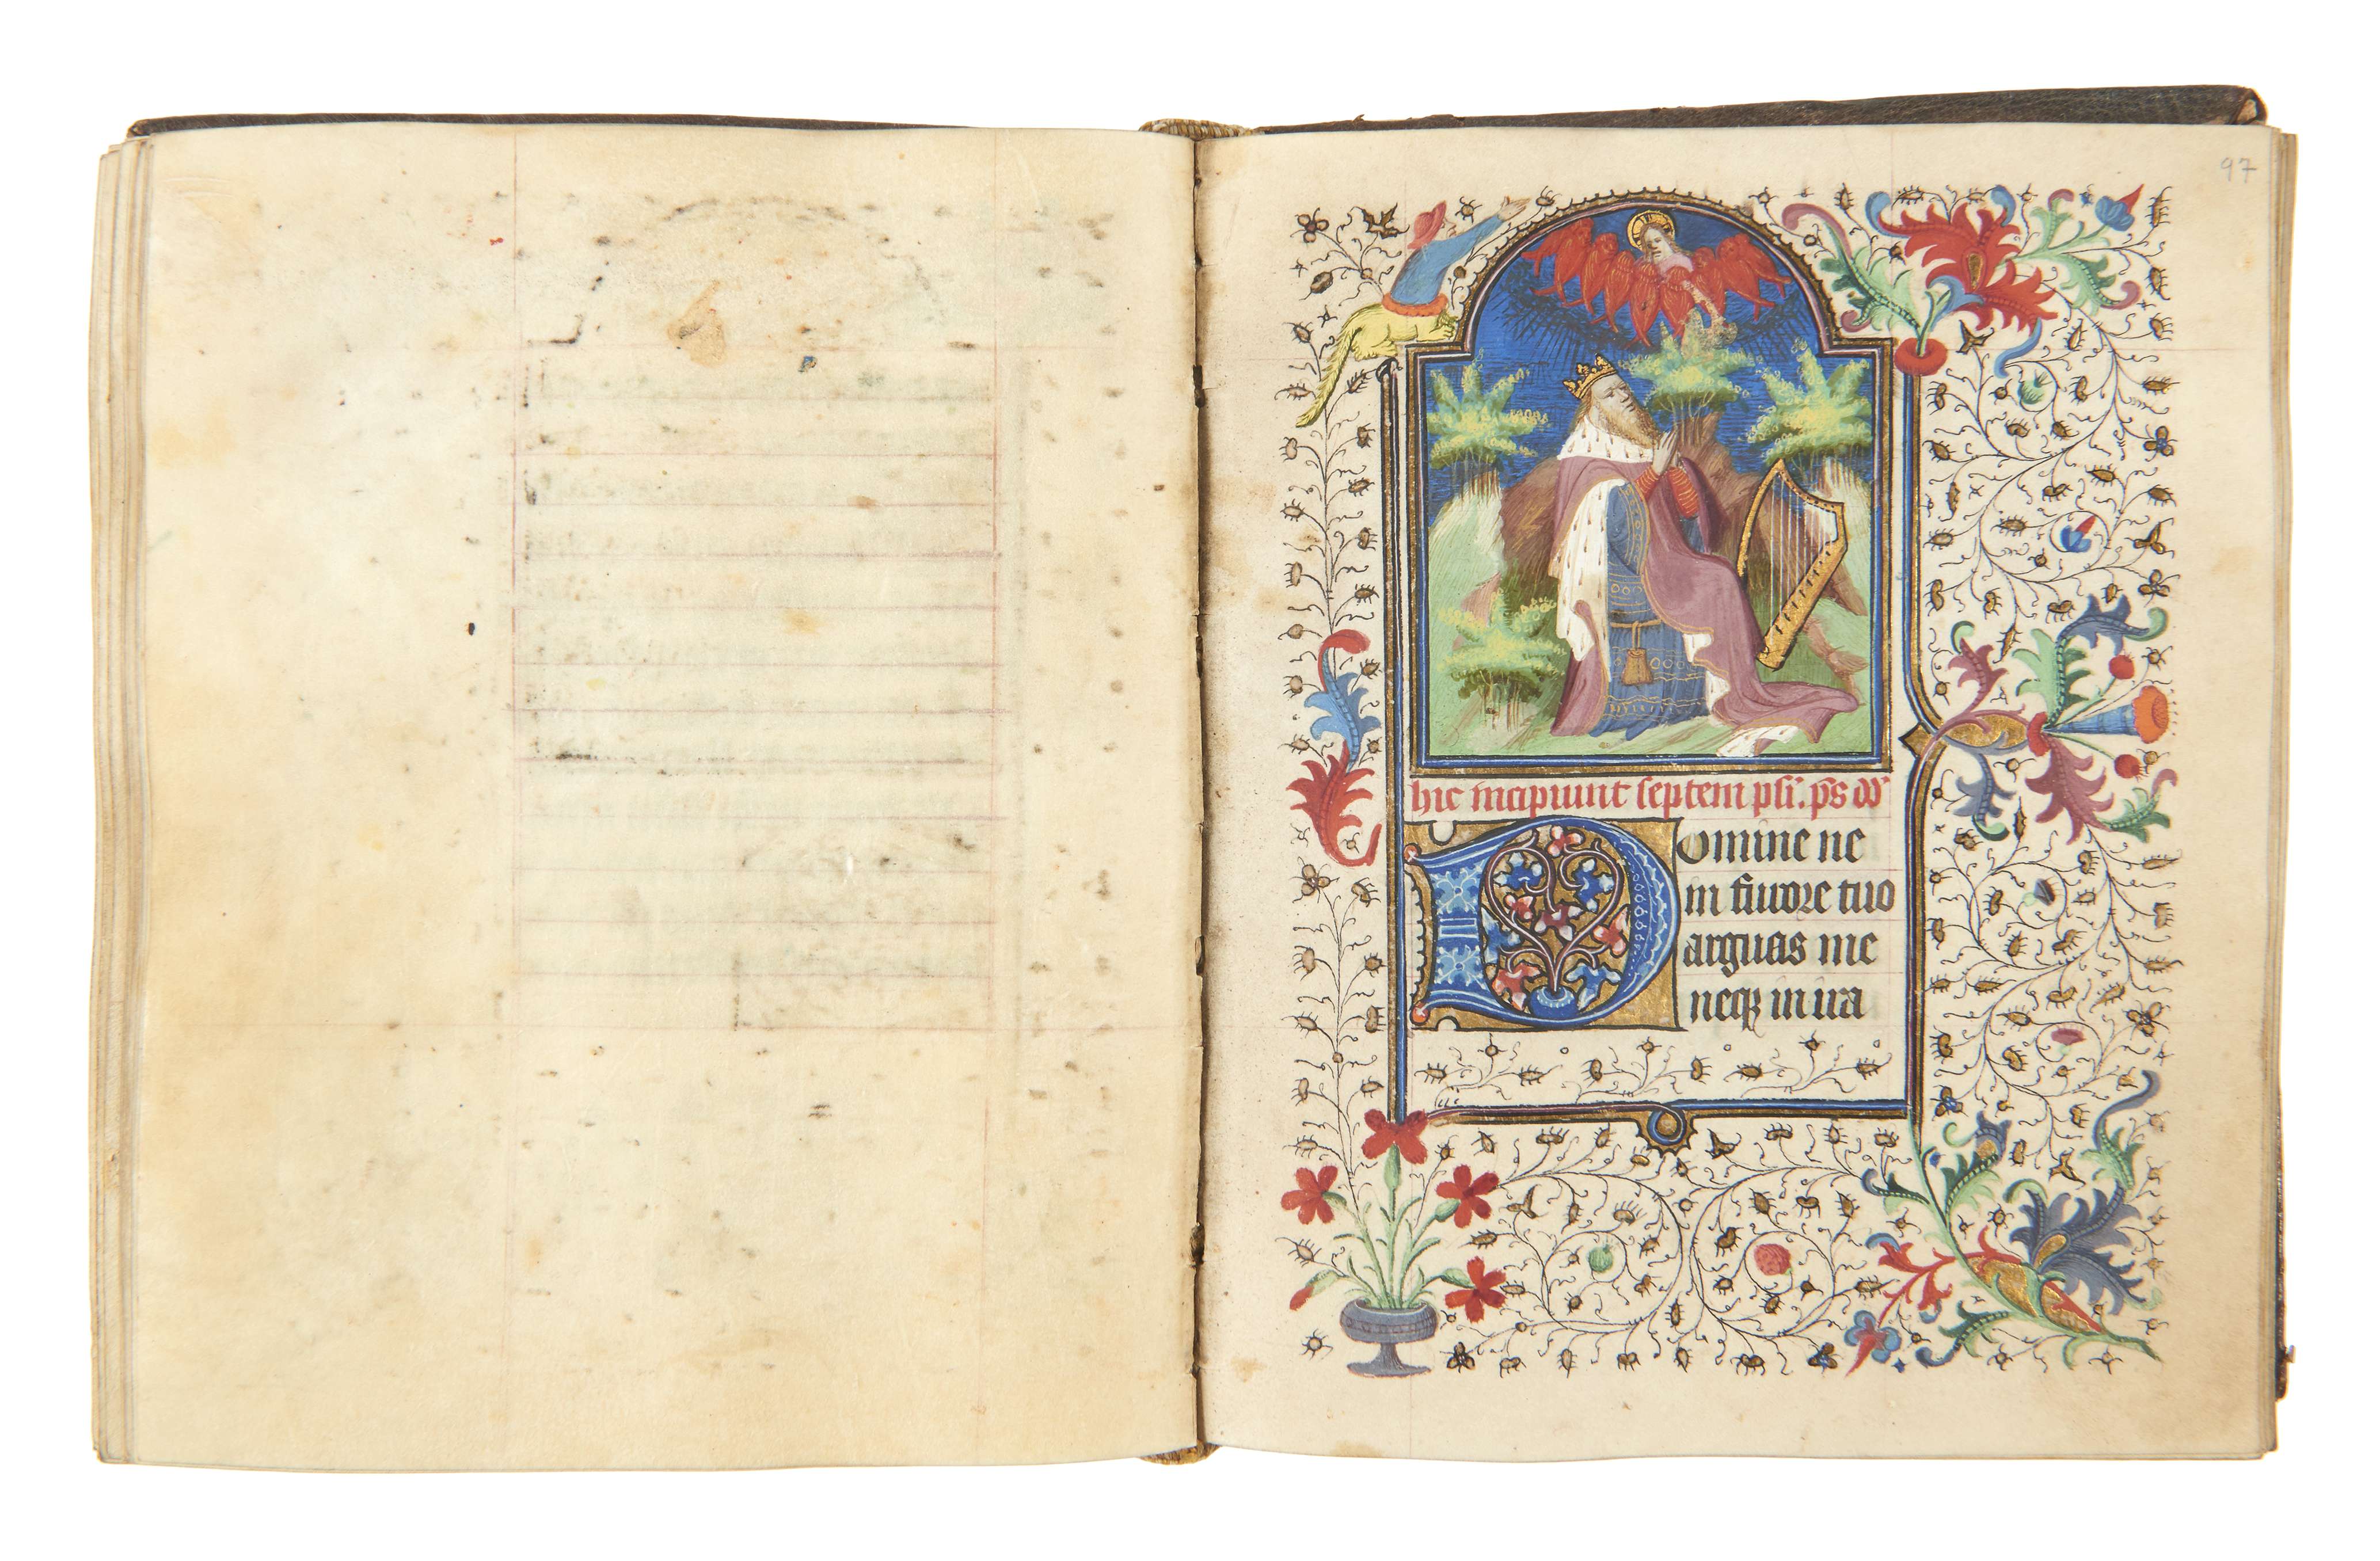 97
hic incipiunt septem psi. ps dd
Domine ne
in furore tuo
arguas me
neqʒ in ira